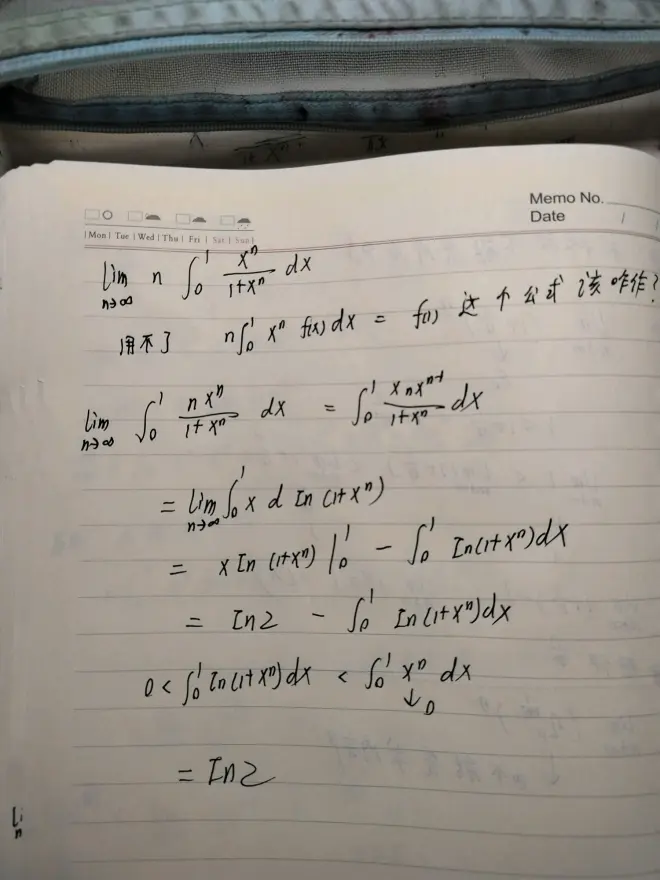 Memo No.
Date / /
Mon Tue Wed Thu Fri Sat Sun
lim n→∞ n ∫₀¹ xⁿ/(1+xⁿ) dx
用不了 n∫₀¹ xⁿ f(x) dx = f(1) 这个公式该咋作?
lim n→∞ ∫₀¹ n xⁿ/(1+xⁿ) dx = ∫₀¹ x n xⁿ⁻¹/(1+xⁿ) dx
= lim n→∞ ∫₀¹ x d In (1+xⁿ)
= x In (1+xⁿ) |₀¹ - ∫₀¹ In(1+xⁿ)dx
= In2 - ∫₀¹ In(1+xⁿ)dx
0 < ∫₀¹ In(1+xⁿ)dx < ∫₀¹ xⁿ dx
↓0
= In2
li
n